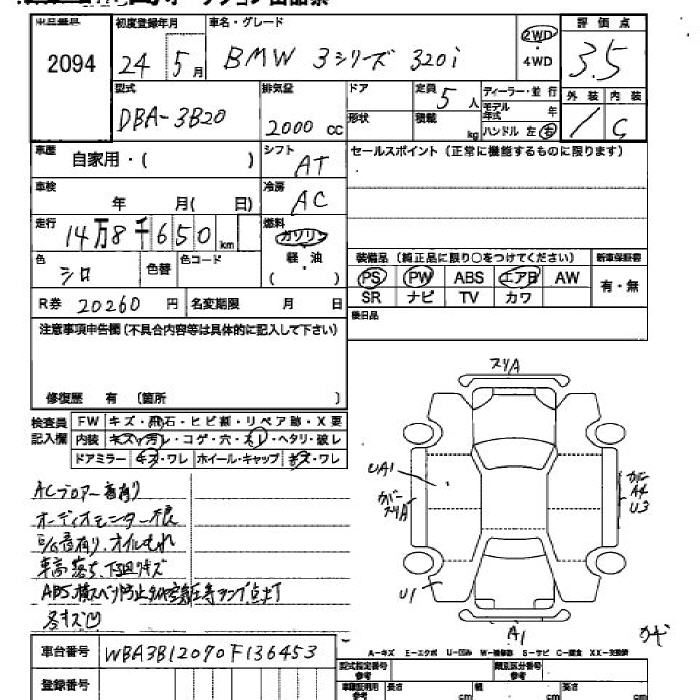 2094
初度登録年月
24 5月
車名・グレード
BMW 3シリーズ 320i
2WD
・
4WD
評価点
3.5
外装 内装
C
型式
DBA-3B20
排気量
2000 cc
ドア
形状
定員 5人
積載 kg
ディーラー・並行
モデル年式 年
ハンドル 左 右
車歴 自家用・( )
シフト AT
セールスポイント(正常に機能するものに限ります)
車検 年 月( 日)
冷房 AC
走行 14万8千650km
燃料 ガソリン
軽・油
( )
色 シロ
色替
色コード
装備品(純正品に限り○をつけてください)
新車保証書
PS PW ABS エアB AW
SR ナビ TV カワ
有・無
R券 20260円
名変期限 月 日
後日品
注意事項申告欄(不具合内容等は具体的に記入して下さい)
修復歴 有 〔箇所 〕
検査員記入欄
FW キズ・飛石・ヒビ割・リペア跡・X要
内装 キズ・汚レ・コゲ・穴・スレ・ヘタリ・破レ
ドアミラー キズ・ワレ ホイール・キャップ キズ・ワレ
スリA
UA1
カバー
スリA
カバー
A4
U3
U1
A1
ACブロアー音有り
オーディオモニター不良
音有り、オイルもれ
車高落ち、下回りキズ
各キズ凹
車台番号 WBA3B12070F136453
登録番号
A-キズ E-エクボ U-凹み W-補修跡 S-サビ C-腐食 XX-交換済
型式指定番号
類別区分番号
長さ cm
幅 cm
高さ cm